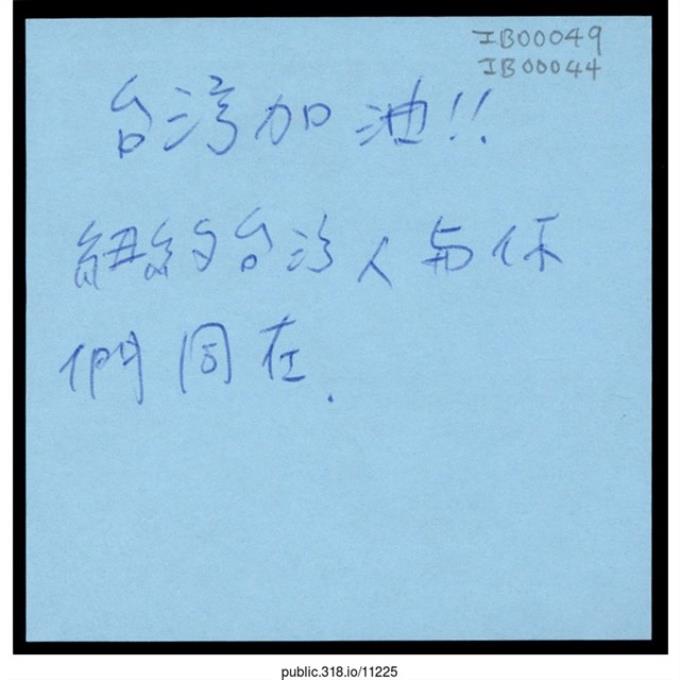 IB00049
IB00044
台湾加油!!
紐約台湾人与你
們同在.
public.318.io/11225